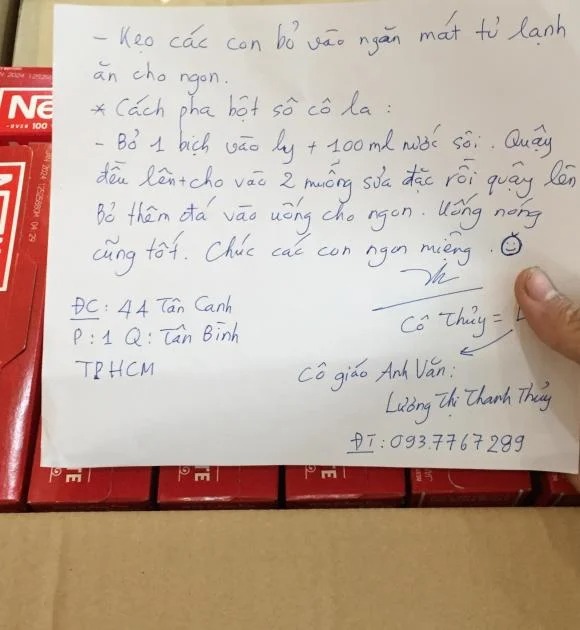 - Kẹo các con bỏ vào ngăn mát tủ lạnh
ăn cho ngon.
* Cách pha bột sô cô la :
- Bỏ 1 bịch vào ly + 100ml nước sôi. Quậy
đều lên + cho vào 2 muỗng sữa đặc rồi quậy lên
Bỏ thêm đá vào uống cho ngon. Uống nóng
cũng tốt. Chúc các con ngon miệng.
ĐC: 44 Tân Canh
P: 1 Q: Tân Bình
TPHCM
Cô Thủy =
Cô giáo Anh Văn:
Lương Thị Thanh Thủy
ĐT: 093.7767289
Ne
OVER 100